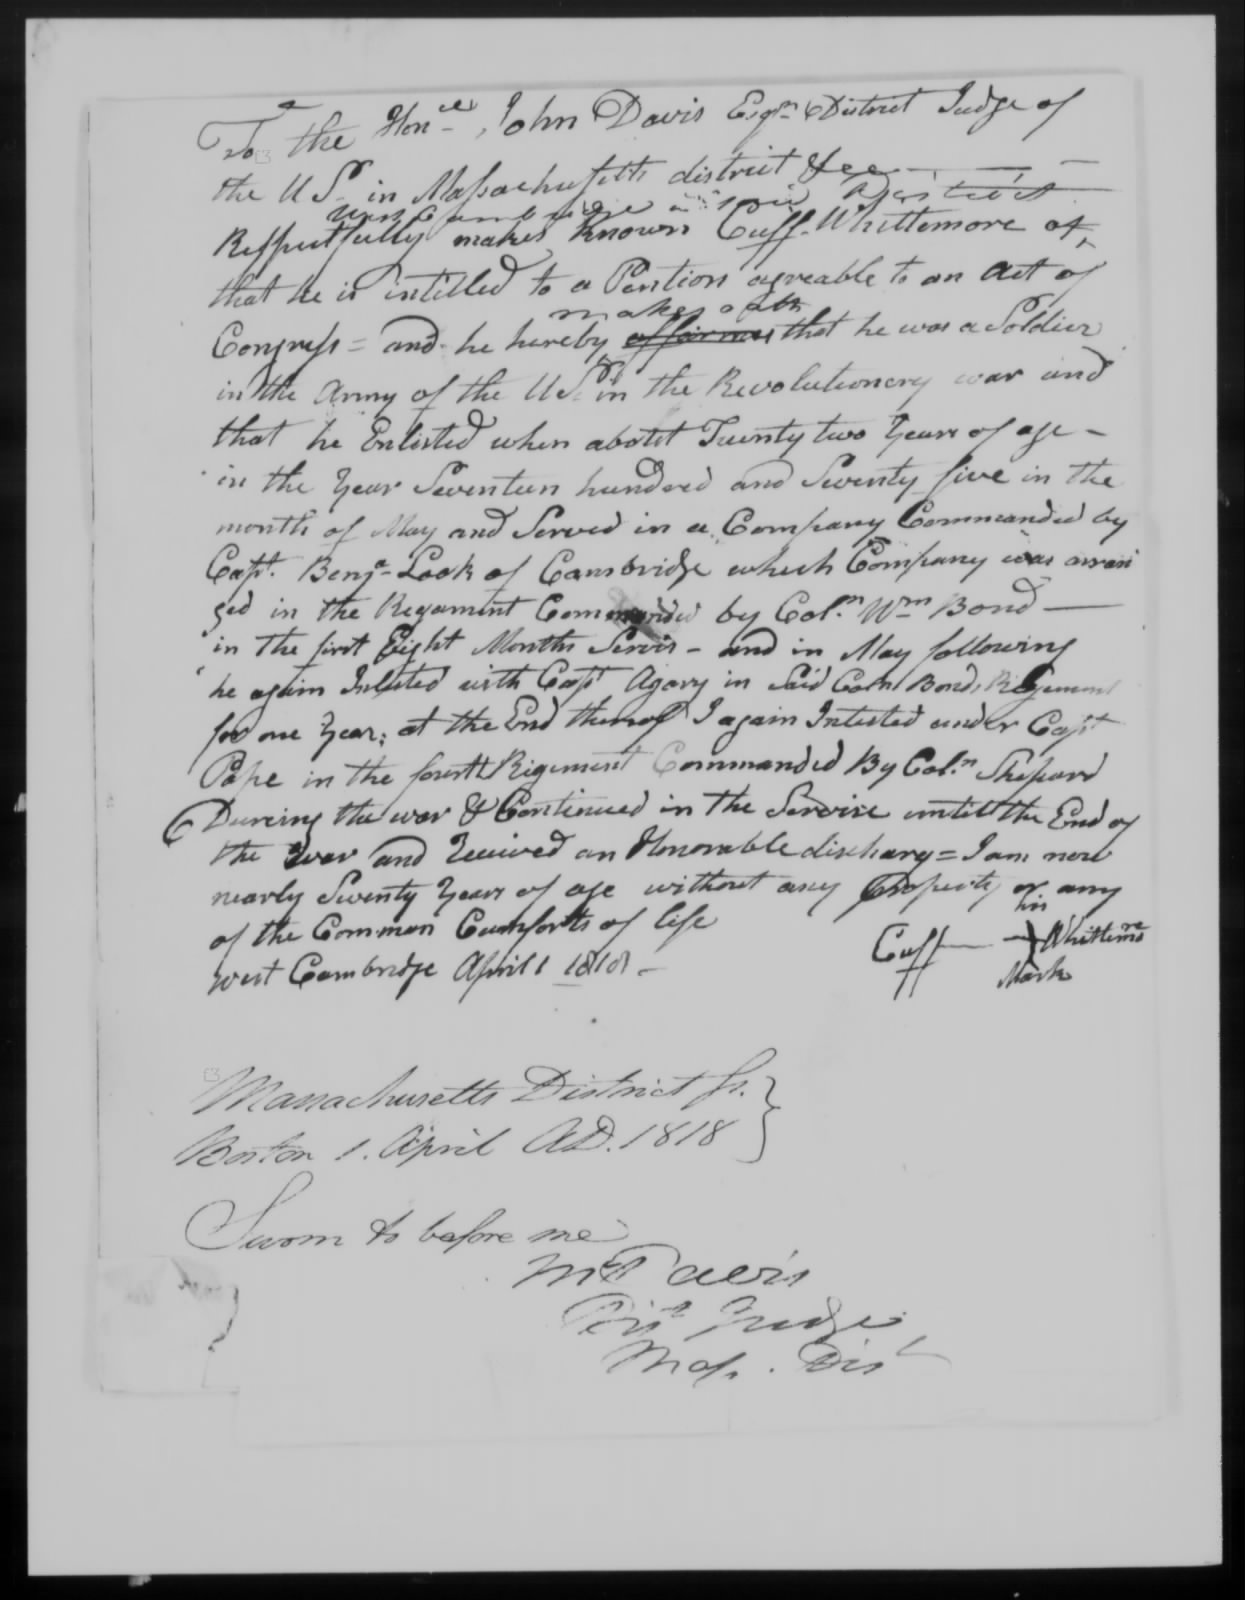 To the Hon.ble John Davis Esqr District Judge of
the U S. in Massachusetts district &cc
West Cambridge in said District
Respectfully makes known Cuff Whittemore of
that he is intitled to a Pention agreable to an Act of
makes oath
Congress = and he hereby affirmes that he was a Soldier
in the Army of the U S. in the Revolutionery war and
that he Enlisted when about Twenty two Years of age -
in the Year Seventeen hundred and Seventy five in the
month of May and Served in a Company Commanded by
Capt. Benja Lock of Cambridge which Company was arran
ged in the Regament Commanded by Col.n Wm Bond
in the first Eight Months Servis - and in May following
he again Inlisted with Capt Agary in Said Coln Bonds Rigement
for one Year; at the End thereof I again Inlisted under Capt
Pope in the fourth Rigement Commanded By Col.n Shepard
Dureing the war & Continued in the Service untill the End of
the war and Received an Honorable discharg = I am now
nearly Seventy Years of age without any Property or any
of the Common Cumforts of life
his
Cuff Whittemore
Mark
West Cambridge April 1 1818 -
Massachusetts District ss.
Boston 1. April AD. 1818
Sworn to before me
Davis
Dist Judge
Mass. Dist